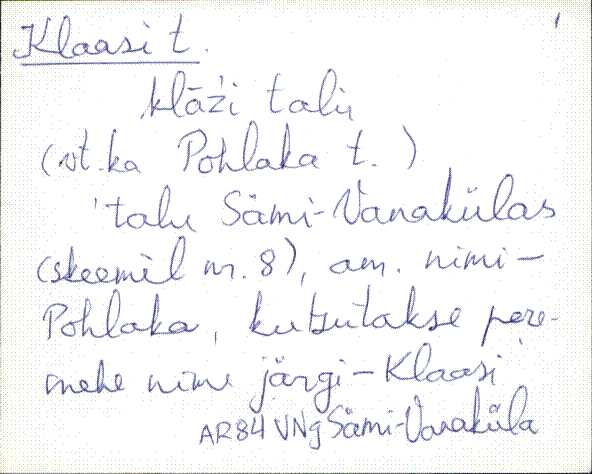 Klaasi t.
klāźi talu
(vt. ka Pohlaka t.)
'talu Sämi-Vanakülas
(skeemil nr. 8), am. nimi-
Pohlaka, kutsutakse pere-
mehe nime järgi-Klaasi
AR84 VNg Sämi-Vanaküla